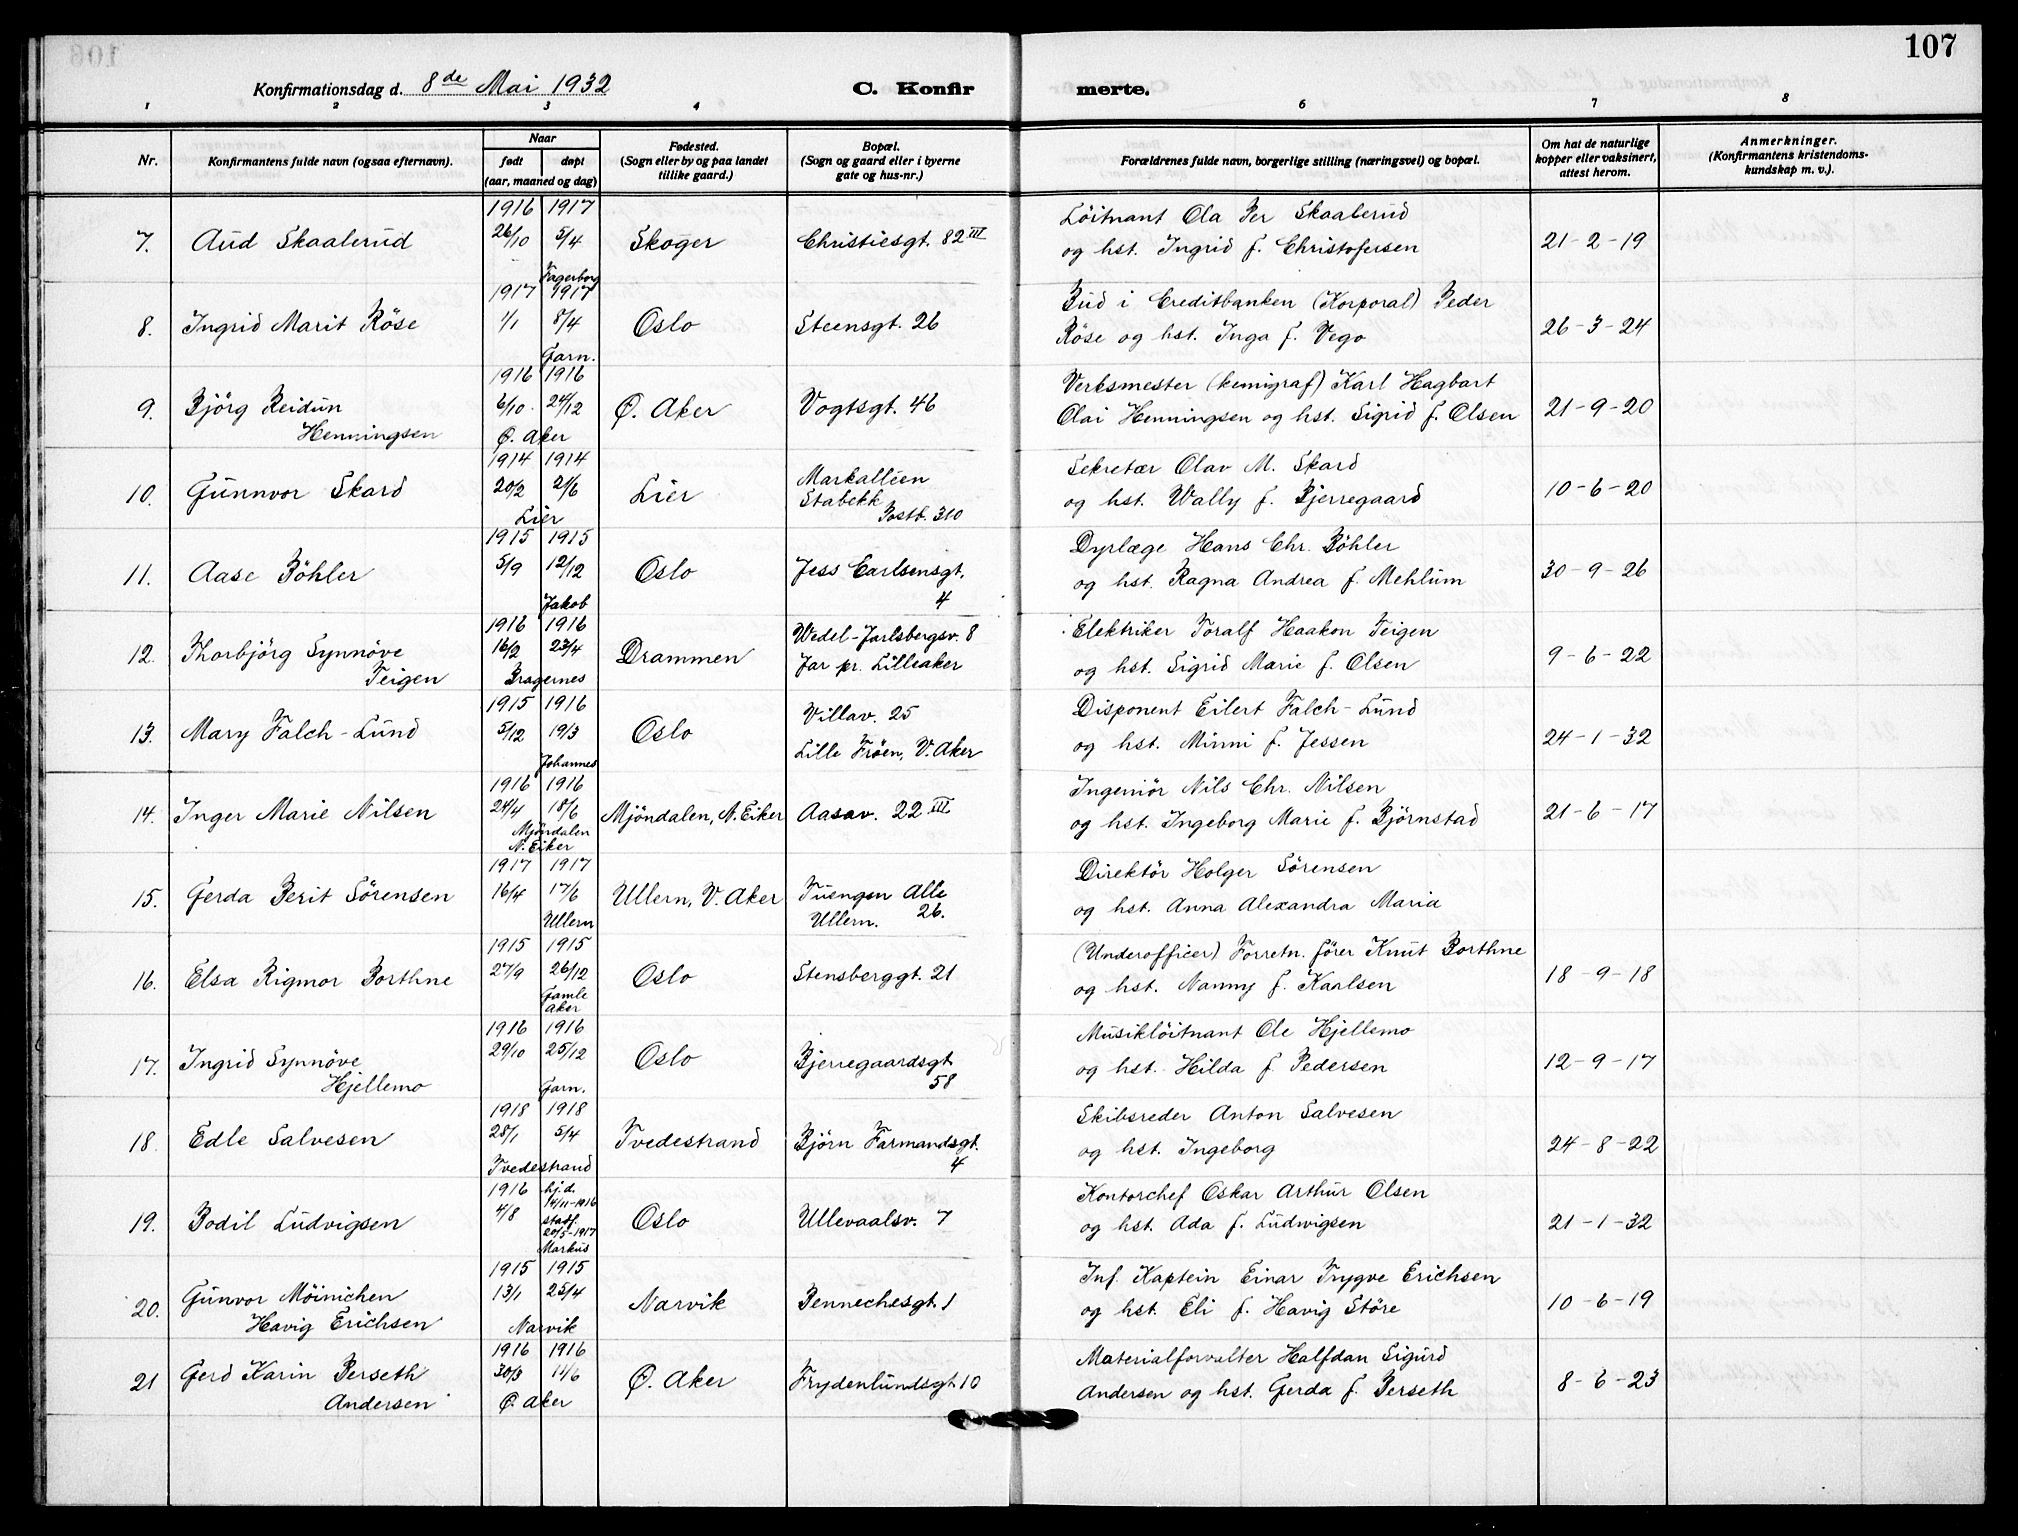 107
Konfirmationsdag d. 8de Mai 1932
C. Konfir
merte.
1 2 3 4 5 6 7 8
Nr.
Konfirmantens fulde navn (ogsaa efternavn).
Naar
født
døpt
(aar, maaned og dag)
Fødested.
(Sogn eller by og paa landet
tillike gaard.)
Bopæl.
(Sogn og gaard eller i byerne
gate og hus-nr.)
Forældrenes fulde navn, borgerlige stilling (næringsvei) og bopæl.
Om hat de naturlige
kopper eller vaksinert,
attest herom.
Anmerkninger.
(Konfirmantens kristendoms-
kundskap m. v.).
1916 1917
7. Aud Skaalerud 26/10 5/4 Skoger Christiesgt. 82 III
Fagerborg
Löitnant Ola Per Skaalerud
og hst. Ingrid f. Christofersen
21-2-19
1917 1917
8. Ingrid Marit Röse 1/1 8/4 Oslo Steensgt. 26
Garn.
Bud i Creditbanken (Korporal) Peder
Röse og hst. Inga f. Vego
26-3-24
1916 1916
9. Björg Reidun 6/10 24/12 Ö. Aker Vogtsgt. 46
Henningsen Ö. Aker
Verksmester (kemigraf) Karl Hagbart
Olai Henningsen og hst. Sigrid f. Olsen
21-9-20
1914 1914
10. Gunnvor Skard 20/2 21/6 Lier Markalléen
Stabekk
Postb. 310
Lier
Sekretær Olav M. Skard
og hst. Wally f. Bjerregaard
10-6-20
1915 1915
11. Aase Böhler 5/9 12/12 Oslo Jess Carlsensgt.
4
Jakob
Dyrlæge Hans Chr. Böhler
og hst. Ragna Andrea f. Mehlum
30-9-26
1916 1916
12. Thorbjörg Synnöve 16/2 23/4 Drammen Wedel-Jarlsbergsv. 8
Jar pr. Lilleaker
Teigen Bragernes
Elektriker Toralf Haakon Teigen
og hst. Sigrid Marie f. Olsen
9-6-22
1915 1916
13. Mary Falch-Lund 5/12 19/3 Oslo Villav. 25
Lille Fröen, V. Aker
Johannes
Disponent Eilert Falch-Lund
og hst. Minni f. Jessen
24-1-32
1916 1916
14. Inger Marie Nilsen 24/4 18/6 Mjöndalen, N. Eiker Aasav. 22 III
Mjöndalen
N. Eiker
Ingeniör Nils Chr. Nilsen
og hst. Ingeborg Marie f. Björnstad
21-6-17
1917 1917
15. Gerda Berit Sörensen 16/4 17/6 Ullern, V. Aker Tuengen Alle
Ullern. 26.
Ullern
Direktör Holger Sörensen
og hst. Anna Alexandra Maria
1915 1915
16. Elsa Rigmor Borthne 27/9 26/12 Oslo Stensberggt. 21
Gamle
Aker
(Underofficer) Forretn. förer Knut Borthne
og hst. Nanny f. Karlsen
18-9-18
1916 1916
17. Ingrid Synnöve 29/10 25/12 Oslo Bjerregaardsgt.
58
Hjellemo Garn.
Musiklöitnant Ole Hjellemo
og hst. Hilda f. Pedersen
12-9-17
1918 1918
18. Edle Salvesen 28/1 5/4 Tvedestrand Björn Farmandsgt.
4
Tvedestrand
Skibsreder Anton Salvesen
og hst. Ingeborg
24-8-22
1916 hj.d.
14/11-1916
19. Bodil Ludvigsen 4/8 stadf. Oslo Ullevaalsv. 7
20/5-1917
Markus
Kontorchef Oskar Arthur Olsen
og hst. Ada f. Ludwigsen
21-1-32
1915 1915
20. Gunvor Möinichen 13/1 25/4 Narvik Bennechesgt. 1
Havig Erichsen Narvik
Inf. Kaptein Einar Trygve Erichsen
og hst. Eli f. Havig Störe
10-6-19
1916 1916
21 Gerd Karin Berseth 30/3 11/6 Ö. Aker Frydenlundsgt 10
Andersen Ö. Aker
Materialforvalter Halfdan Sigurd
Andersen og hst. Gerda f. Berseth
8-6-23